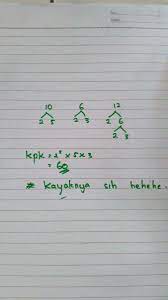 10 6 12
2 5 2 3 2 6
2 3
kpk = 2² x 5 x 3
= 60
* Kayaknya sih hehehe.